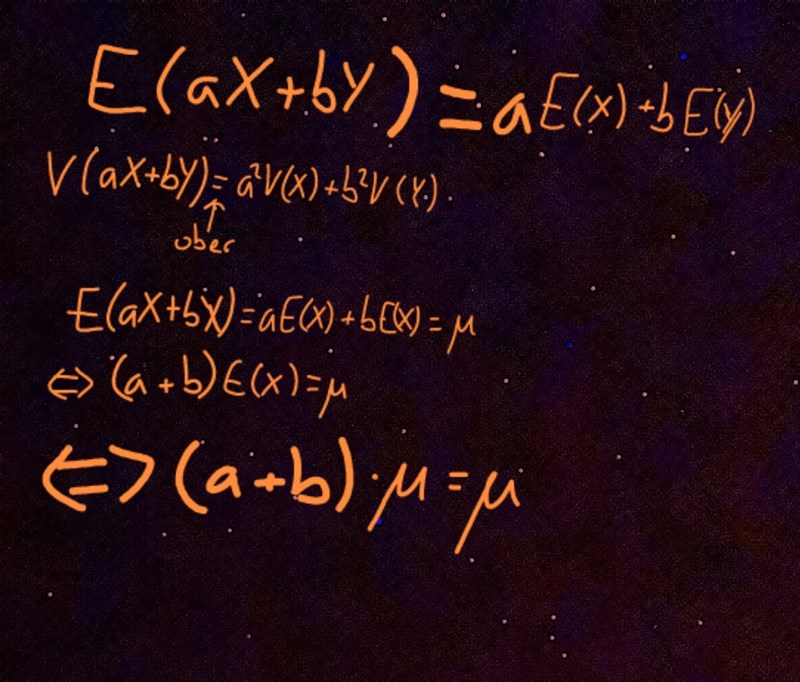 E(aX+bY)=aE(X)+bE(Y)
V(aX+bY)=a²V(X)+b²V(Y).
↑
ober
E(aX+bX)=aE(X)+bE(X)=μ
⇔ (a+b)E(X)=μ
⇔ (a+b)·μ=μ